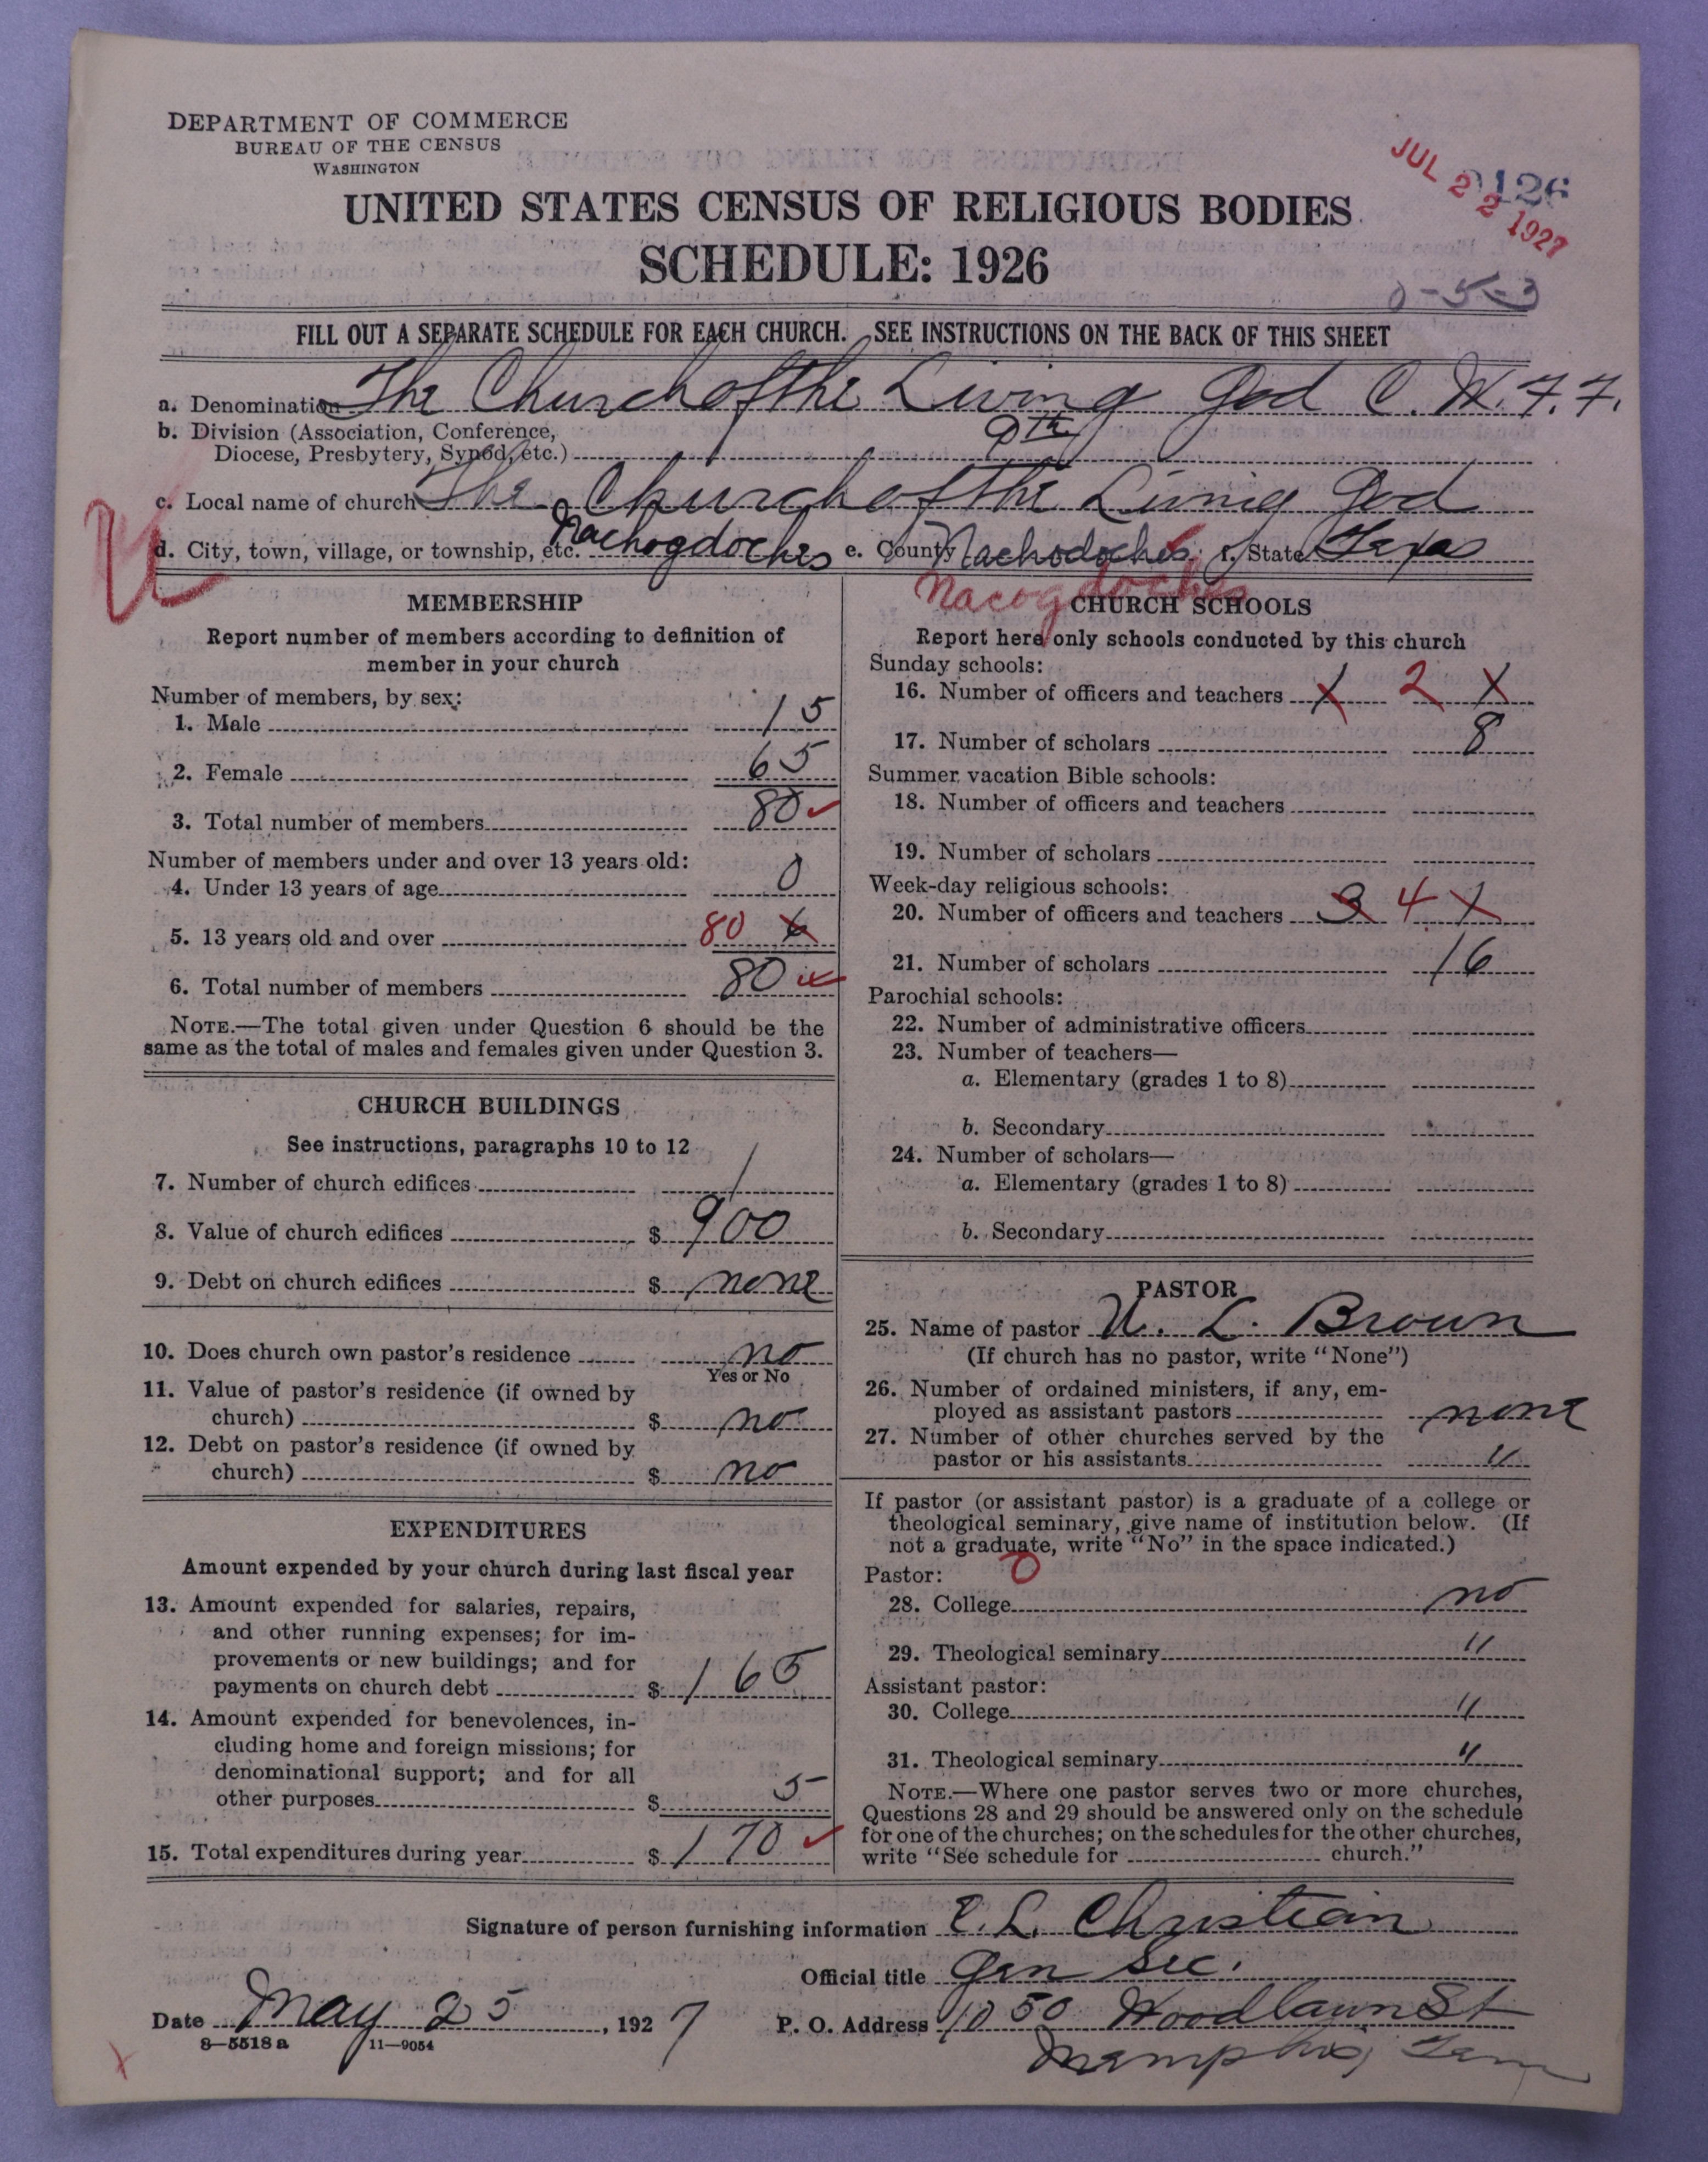 DEPARTMENT OF COMMERCE
BUREAU OF THE CENSUS
WASHINGTON
JUL 22 1927
9126
UNITED STATES CENSUS OF RELIGIOUS BODIES
SCHEDULE: 1926
0-5-3
FILL OUT A SEPARATE SCHEDULE FOR EACH CHURCH. SEE INSTRUCTIONS ON THE BACK OF THIS SHEET
a. Denomination The Church of the Living God C. W. F. F.
b. Division (Association, Conference,
Diocese, Presbytery, Synod, etc.) 9th
c. Local name of church The Church of the Living God
d. City, town, village, or township, etc. Nachogdoches e. County Nachodoches f. State Texas
Nacogdoches
MEMBERSHIP
Report number of members according to definition of
member in your church
Number of members, by sex:
1. Male 15
2. Female 65
3. Total number of members 80
Number of members under and over 13 years old:
4. Under 13 years of age 0
5. 13 years old and over 80 6
6. Total number of members 80
NOTE.—The total given under Question 6 should be the
same as the total of males and females given under Question 3.
CHURCH BUILDINGS
See instructions, paragraphs 10 to 12
7. Number of church edifices 1
8. Value of church edifices $ 900
9. Debt on church edifices $ none
10. Does church own pastor's residence no
Yes or No
11. Value of pastor's residence (if owned by
church) $ no
12. Debt on pastor's residence (if owned by
church) $ no
EXPENDITURES
Amount expended by your church during last fiscal year
13. Amount expended for salaries, repairs,
and other running expenses; for im-
provements or new buildings; and for
payments on church debt $ 165
14. Amount expended for benevolences, in-
cluding home and foreign missions; for
denominational support; and for all
other purposes $ 5
15. Total expenditures during year $ 170
CHURCH SCHOOLS
Report here only schools conducted by this church
Sunday schools:
16. Number of officers and teachers 1 2 1
17. Number of scholars 8
Summer vacation Bible schools:
18. Number of officers and teachers
19. Number of scholars
Week-day religious schools:
20. Number of officers and teachers 3 4 1
21. Number of scholars 16
Parochial schools:
22. Number of administrative officers
23. Number of teachers—
a. Elementary (grades 1 to 8)
b. Secondary
24. Number of scholars—
a. Elementary (grades 1 to 8)
b. Secondary
PASTOR
25. Name of pastor U. L. Brown
(If church has no pastor, write "None")
26. Number of ordained ministers, if any, em-
ployed as assistant pastors none
27. Number of other churches served by the
pastor or his assistants "
If pastor (or assistant pastor) is a graduate of a college or
theological seminary, give name of institution below. (If
not a graduate, write "No" in the space indicated.)
Pastor: 0
28. College no
29. Theological seminary "
Assistant pastor:
30. College "
31. Theological seminary "
NOTE.—Where one pastor serves two or more churches,
Questions 28 and 29 should be answered only on the schedule
for one of the churches; on the schedules for the other churches,
write "See schedule for church."
Signature of person furnishing information E. L. Christian
Official title Gen Sec.
Date May 25, 1927 P. O. Address 1050 Woodlawn St
8—5518 a 11—9054
Memphis, Tenn